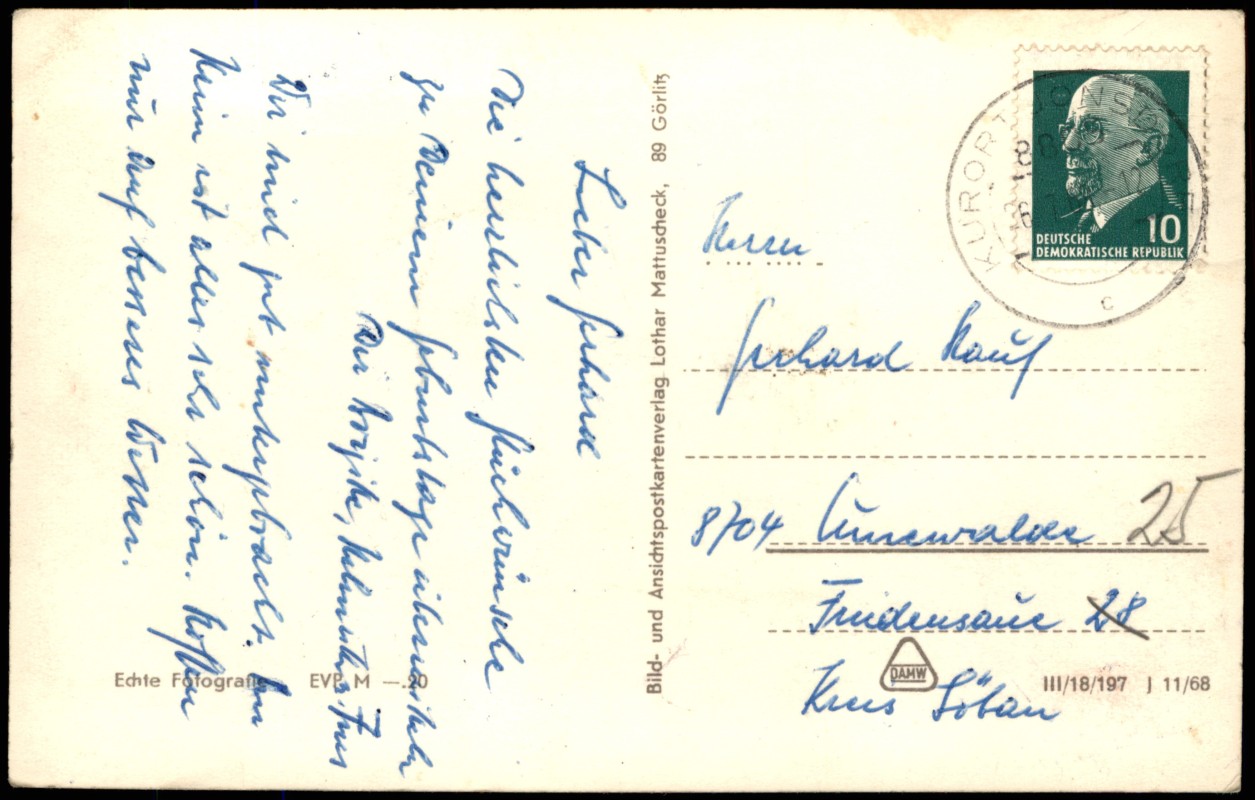 Lieber Gerhard
Die herzlichsten Glückwünsche
zu Deinem Geburtstage übermitteln
Dir Brigitte,
Wir sind gut untergebracht. Im
Heim ist alles sehr schön. Hoffen
nur auf besseres Wetter.
Echte Fotografie EVP M —.20
Bild- und Ansichtspostkartenverlag Lothar Mattuscheck, 89 Görlitz
KURORT JONSDORF
8805
c
10
DEUTSCHE
DEMOKRATISCHE REPUBLIK
Herrn
Gerhard Kauf
8704 Cunewalde 25
Friedensaue 28
DAMW
Kreis Löbau
III/18/197 J 11/68